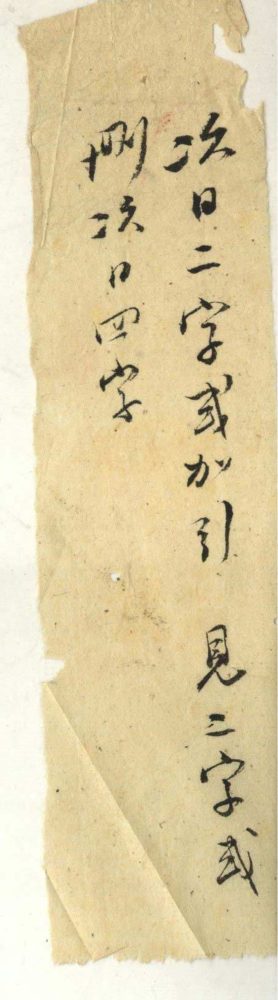 次日二字或加引 見二字或
刪次日四字